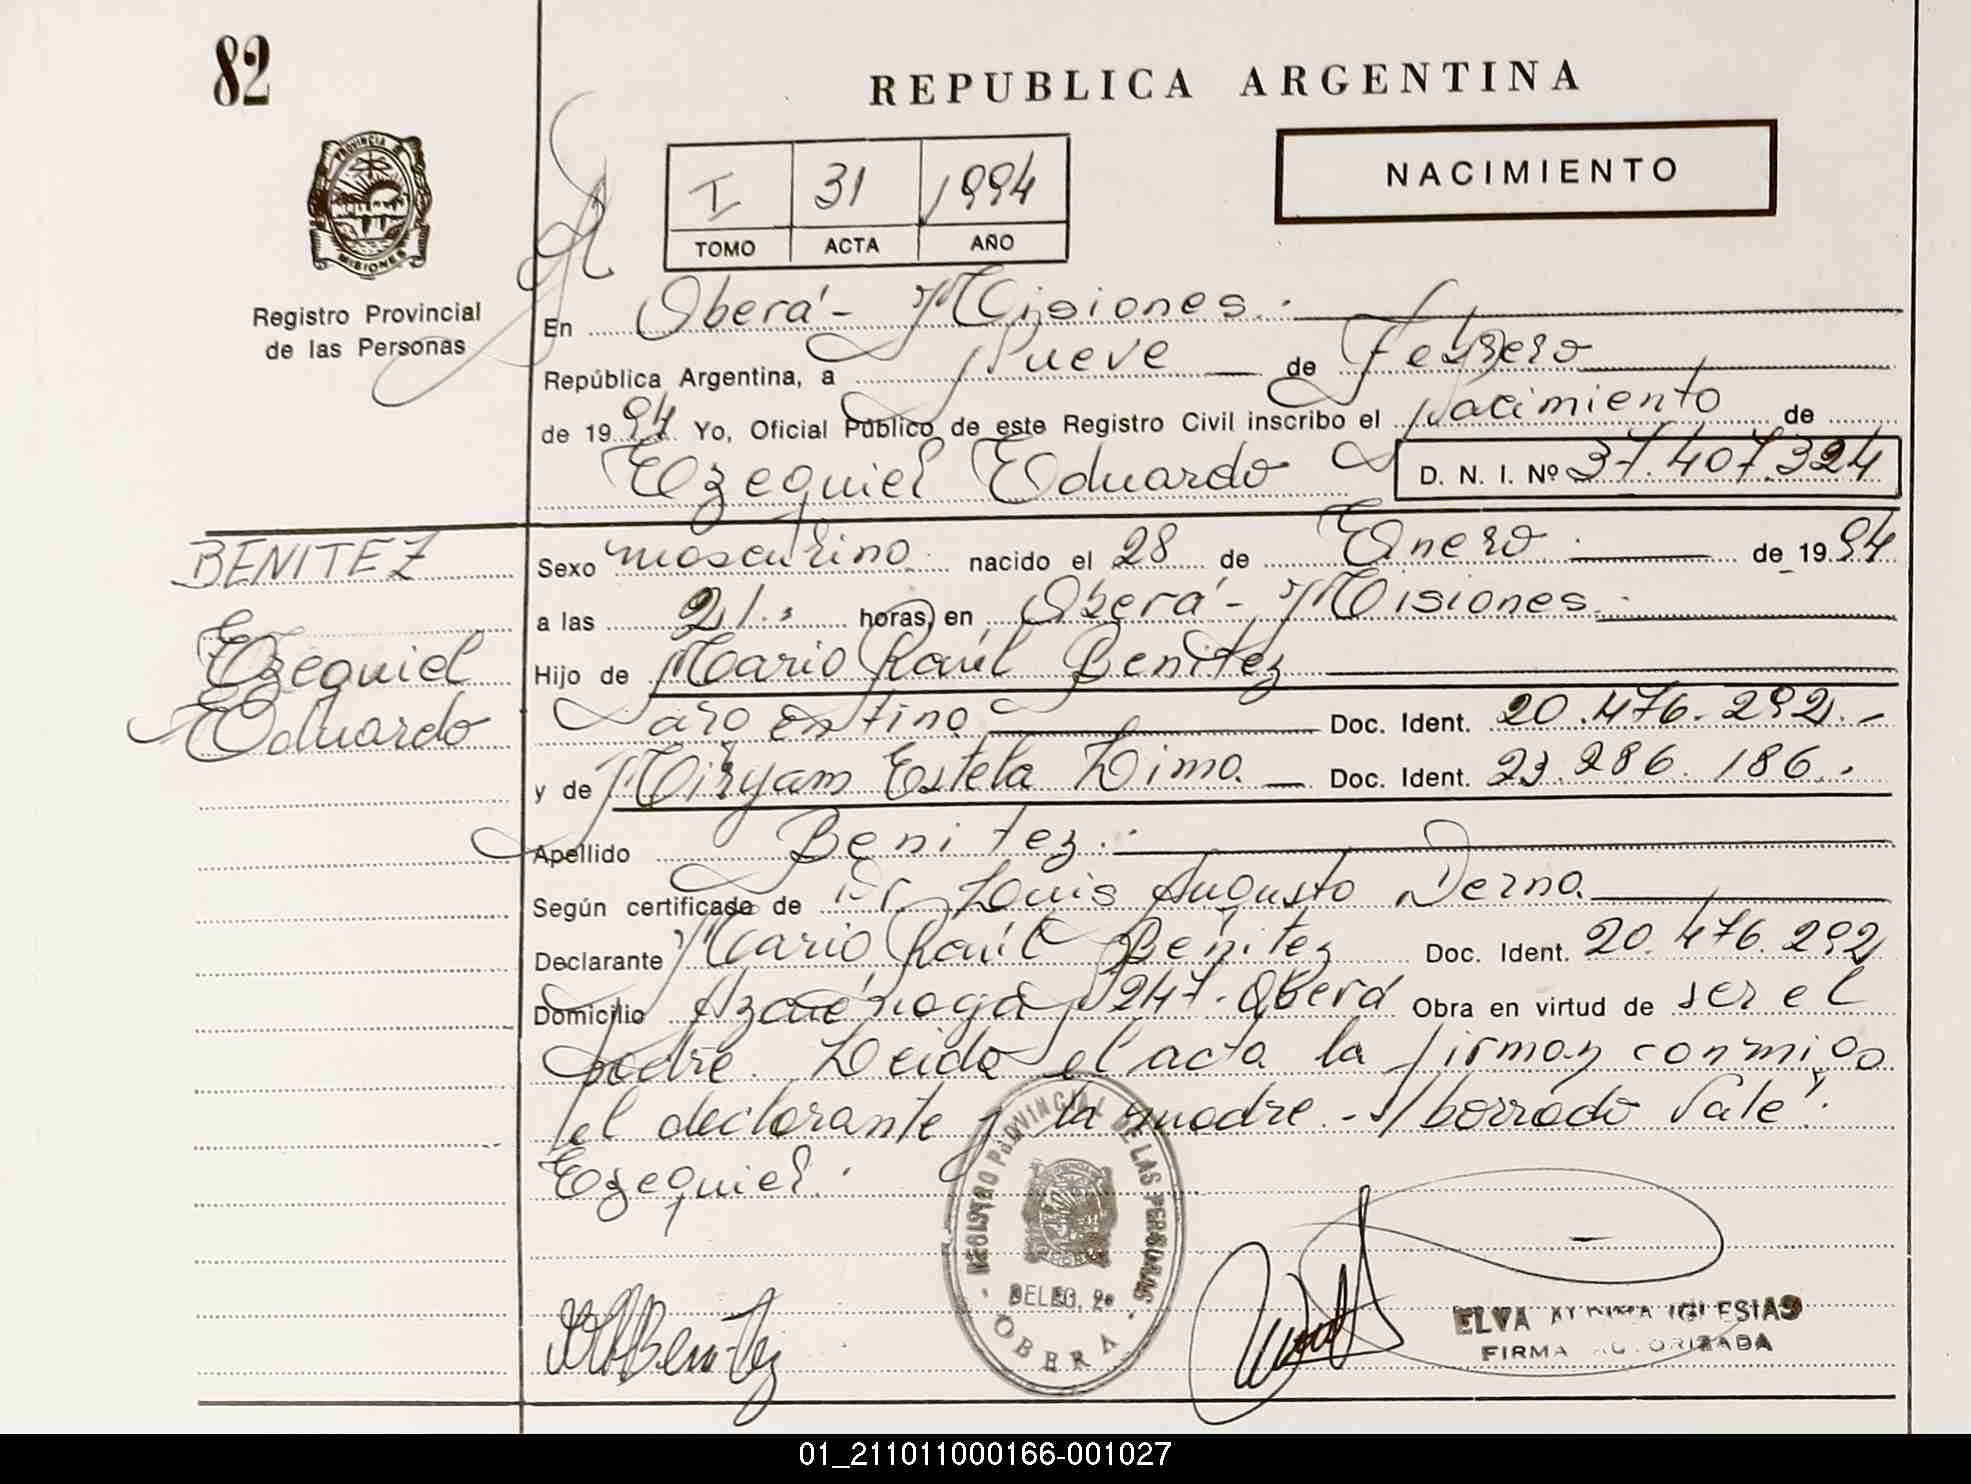 82
REPUBLICA ARGENTINA
NACIMIENTO
I 31 1994
TOMO ACTA AÑO
PROVINCIA DE
MISIONES
Registro Provincial
de las Personas
En Oberá - Misiones.
República Argentina, a Nueve de Febrero
de 1994 Yo, Oficial Público de este Registro Civil inscribo el nacimiento de
Ezequiel Eduardo D. N. I. Nº 37.407.324
BENITEZ
Ezequiel
Eduardo
Sexo masculino. nacido el 28 de Enero de 1994
a las 21. horas, en Oberá - Misiones.
Hijo de Mario Raúl Benitez
argentino Doc. Ident. 20.476.292.-
y de Miryam Estela Lima Doc. Ident. 23.286.186.
Apellido Benitez.
Según certificado de Dr. Luis Augusto Derna
Declarante Mario Raúl Benitez Doc. Ident. 20.476.292
Domicilio 247 - Oberá Obra en virtud de ser el
padre. Leida el acta la firman conmigo
el declarante y la madre. - S/borrado Vale".
Ezequiel.
REGISTRO PROVINCIAL DE LAS PERSONAS
DELEG. 2ª
OBERA
Benitez
ELVA IGLESIAS
FIRMA AUTORIZADA
01_211011000166-001027